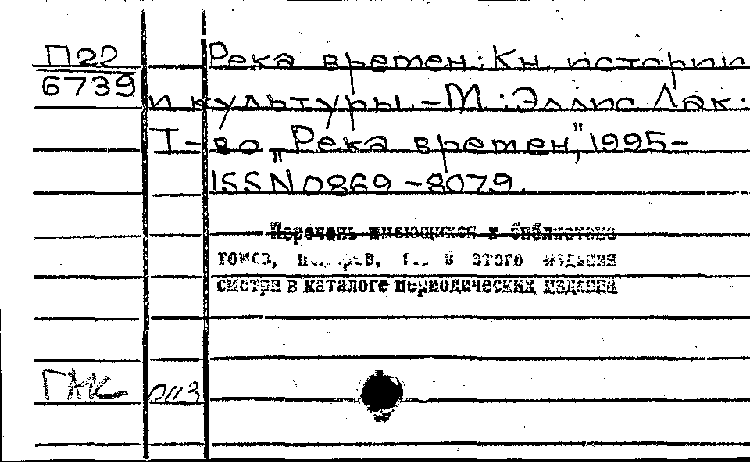 П22
6739
Река времен: Кн. истории
и культуры. - М.: Эллис Лак:
Т-во „Река времен", 1995-
ISSN 0869-8079.
Перечень имеющихся в библиотеке
томов, в этого издания
смотри в каталоге периодических изданий
ГАК